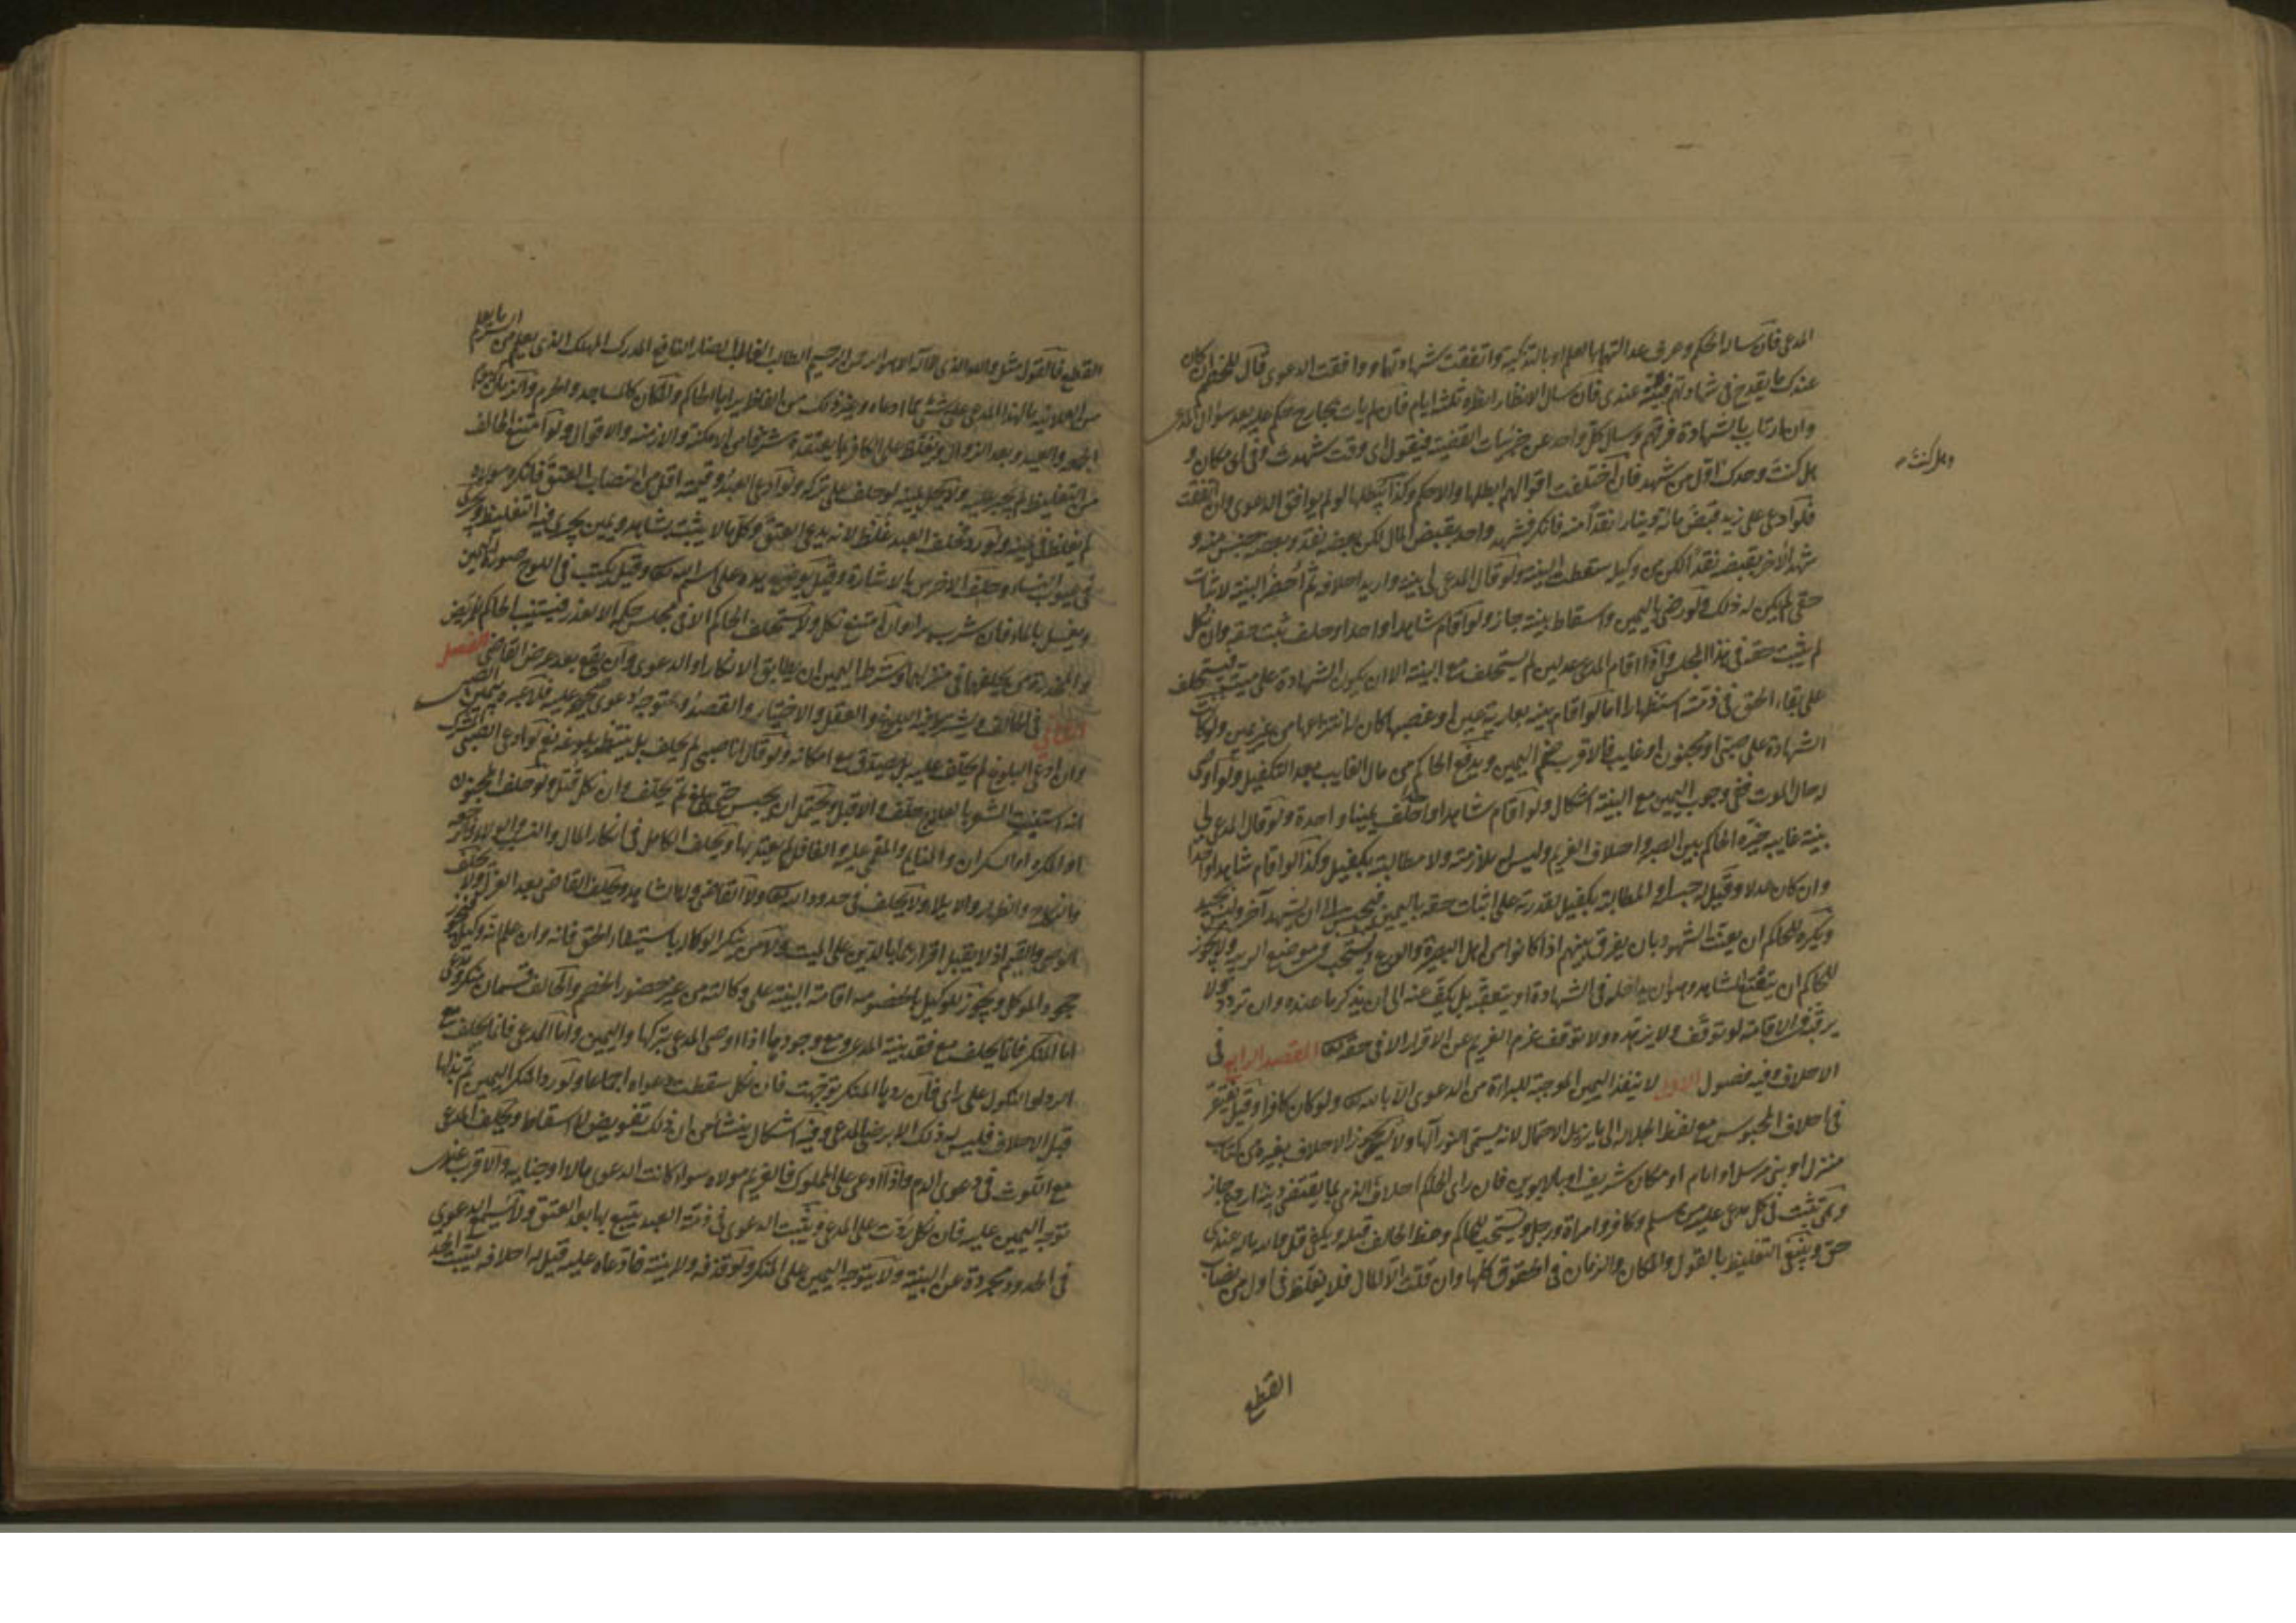 المدعى فان ساله الحكم وعرف عدالتهما بالعلم او بالتزكية واتفقت شهادتهما ووافقت الدعوى قال للخصم ان كان
عندك ما يقدح فى شهادتهم فبينه عندى فان سال الانظار انظره ثلثة ايام فان لم يات بجارح حكم عليه بعد سؤال المدعى
وان ارتاب بالشهادة فرقهم وسال كل واحد عن جزئيات القضية فيقول اى وقت شهدت وفى اى مكان و
هل كنت وحدك او اول من شهد فان اختلفت اقوالهم ابطلها والا حكم وكذا يبطلها لو لم يوافق الدعوى وان اتفقت
وهل كنت
فلو ادعى على زيد قبض مائة دينار نقدا منه فانكر فشهد واحد بقبض المال لكن بعضه نقد وبعضه جنس منه و
شهد الآخر بقبضه نقدا لكن من وكيله سقطت البينة ولو قال المدعى لى بينة واريد احلافه ثم احضر البينة لاثبات
حقى لم يكن له ذلك ولو رضى باليمين واسقاط بينته جاز ولو اقام شاهدا واحدا وحلف ثبت حقه وان نكل
لم يثبت حقه فى هذا المجلس واذا اقام المدعى عدلين لم يستحلف مع البينة الا ان يكون الشهادة على ميت فيستحلف
على بقاء الحق فى ذمته استظهارا اما لو اقام بينة بعارية عين او غصبها كان له انتزاعها من غير يمين ولو كانت
الشهادة على صبى او مجنون او غايب فالاقرب ضم اليمين ويدفع الحاكم من مال الغايب بعد التكفيل ولو اوصى
له حال الموت ففى وجوب اليمين مع البينة اشكال ولو اقام شاهدا واحدا حلف يمينا واحدة ولو قال المدعى لى
بينة غايبة خيره الحاكم بين الصبر واحلاف الغريم وليس له ملازمته ولا مطالبته بكفيل وكذا لو اقام شاهدا واحدا
وان كان عدلا وقيل له حبسه او المطالبة بكفيل لقدرته على اثبات حقه باليمين فيحبس الى ان يشهد آخر وليس بجيد
ويكره للحاكم ان يعنت الشهود بان يفرق بينهم اذا كانوا من اهل البصيرة والورع ويستحب فى موضع الريبة ولا يجوز
للحاكم ان يتعتع الشاهد وهو ان يداخله فى الشهادة او يتعقبه بل يكف عنه الى ان يذكر ما عنده وان تردد ولا
يرغبه فى الاقامة لو توقف ولا يزهده ولا توقف عزم الغريم عن الاقرار الا فى حقه تعالى المقصد الرابع فى
الاحلاف وفيه فصول الاول لا ينفذ اليمين الموجبة للبراءة من الدعوى الا بالله تعالى ولو كان كافرا وقيل يفتقر
فى احلاف المجوس مع لفظ الجلالة الى ما يزيل الاحتمال لانه يسمى النور الها ولا يجوز الاحلاف بغيره من كتاب
منزل او نبى مرسل او امام او مكان شريف او بالابوين فان راى الحاكم احلاف الذمى بما يقتضى دينه اردع جاز
وهى تثبت فى كل مدعى عليه من مسلم وكافر وامراة ورجل ويستحب للحاكم وعظ الحالف قبله ويكفى قل والله ماله عندى
حق وينبغى التغليظ بالقول والمكان والزمان فى الحقوق كلها وان قلت الا المال فلا يغلظ فى اول من نصاب
القطع
القطع فالقول مثل والله الذى لا اله الا هو الرحمن الرحيم الطالب الغالب الضار النافع المدرك المهلك الذى يعلم من السر ما يعلم
من العلانية ما لهذا المدعى على شئ مما ادعاه وغير ذلك من الفاظ يراها الحاكم والمكان كالمساجد والحرم والزمان كيوم
الجمعة والعيد وبعد الزوال ويغلظ على الكافر بما يعتقده شرفا من الامكنة والازمنة والاقوال ولو امتنع الحالف
من التغليظ لم يجبر عليه ولا يحل يمينه لو حلف على تركه ولو ادعى العبد وقيمته اقل من النصاب العتق فانكر مولاه
لم يغلظ فى يمينه ولو رد فحلف العبد غلظ لانه يدعى العتق وكل ما لا يثبت بشاهد ويمين يجرى فيه التغليظ ويجرى
فى عيوب النساء وحلف الاخرس بالاشارة وقيل يوضع يده على اسم الله تعالى وقيل يكتب فى اللوح صورة اليمين
ويغسل بالماء فان شرب برا وان امتنع نكل ولا يستحلف الحاكم الا فى مجلس حكمه الا لعذر فيستنيب الحاكم للمريض
والمخدرة من يحلفها فى منزلها وشرط اليمين ان يطابق الانكار او الدعوى وان يقع بعد عرض القاضى الفصل
الثانى فى الحالف ويشترط فيه البلوغ والعقل والاختيار والقصد وتوجه دعوى صحيحة عليه فلا عبرة بيمين الصبى
وان ادعى البلوغ لم يحلف عليه بل يصدق مع امكانه ولو قال انا صبى لم يحلف بل ينتظر بلوغه نعم لو ادعى الصبى المشرك
انه استنبت الشعر بالعلاج حلف والا قتل ويحتمل ان يحبس حتى يبلغ ثم يحلف وان نكل قتل ولو حلف المجنون
او المكره او السكران والنايم والمغمى عليه والغافل لم يعتد بها ويحلف الكامل فى انكار المال والنسب والولاء والرجعة
والنكاح والظهار والايلاء ولا يحلف فى حدود الله تعالى ولا القاضى ولا الشاهد ويحلف القاضى بعد العزل ولا يحلف
الوصى والقيم اذ لا يقبل اقرارهما بالدين على الميت ولا من ينكر الوكالة باستيفاء الحق فانه وان علم انه وكيل يجوز
جحود الموكل ويجوز للوكيل بالخصومة اقامة البينة على وكالته من غير حضور الخصم والحالف قسمان منكر ومدعى
اما المنكر فانما يحلف مع فقد بينة المدعى ومع وجودها اذا رضى المدعى بتركها واليمين واما المدعى فانما يحلف مع
الرد او النكول على راى فان ردها المنكر توجهت فان نكل سقطت دعواه اجماعا ولو رد المنكر اليمين ثم بذلها
قبل الاحلاف فليس له ذلك الا برضى المدعى وفيه اشكال ينشأ من ان ذلك تفويض لا اسقاط ويحلف المدعى
مع اللوث فى دعوى الدم واذا ادعى على المملوك فالغريم مولاه سواء كانت الدعوى مالا او جناية والاقرب عندى
توجه اليمين عليه فان نكل ردت على المدعى وثبت الدعوى فى ذمة العبد يتبع بها بعد العتق ولا تسمع الدعوى
فى الحدود مجردة عن البينة ولا يتوجه اليمين على المنكر ولو قذفه ولا بينة فادعاه عليه قيل له احلافه ليثبت الحد